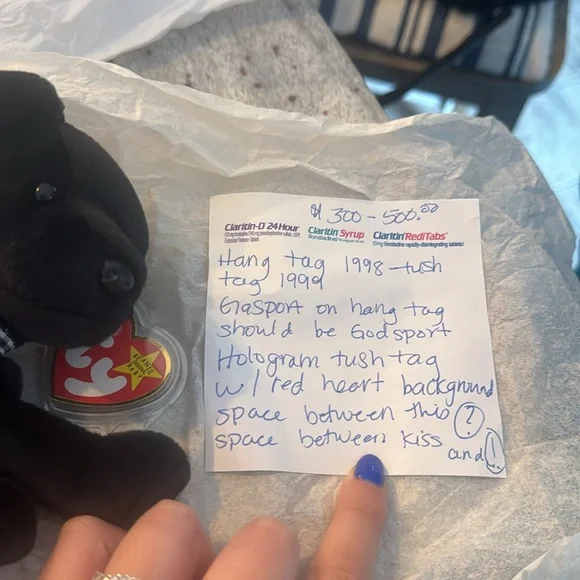 $ 300 - 500.00
Claritin-D 24 Hour Claritin Syrup Claritin RediTabs
Extended Release Tablets (loratadine)
Hang tag 1998 - tush
tag 1999
GaSport on hang tag
should be Godsport
Hologram tush tag
w/ red heart background
space between this ?
space between kiss
and !
BEANIE